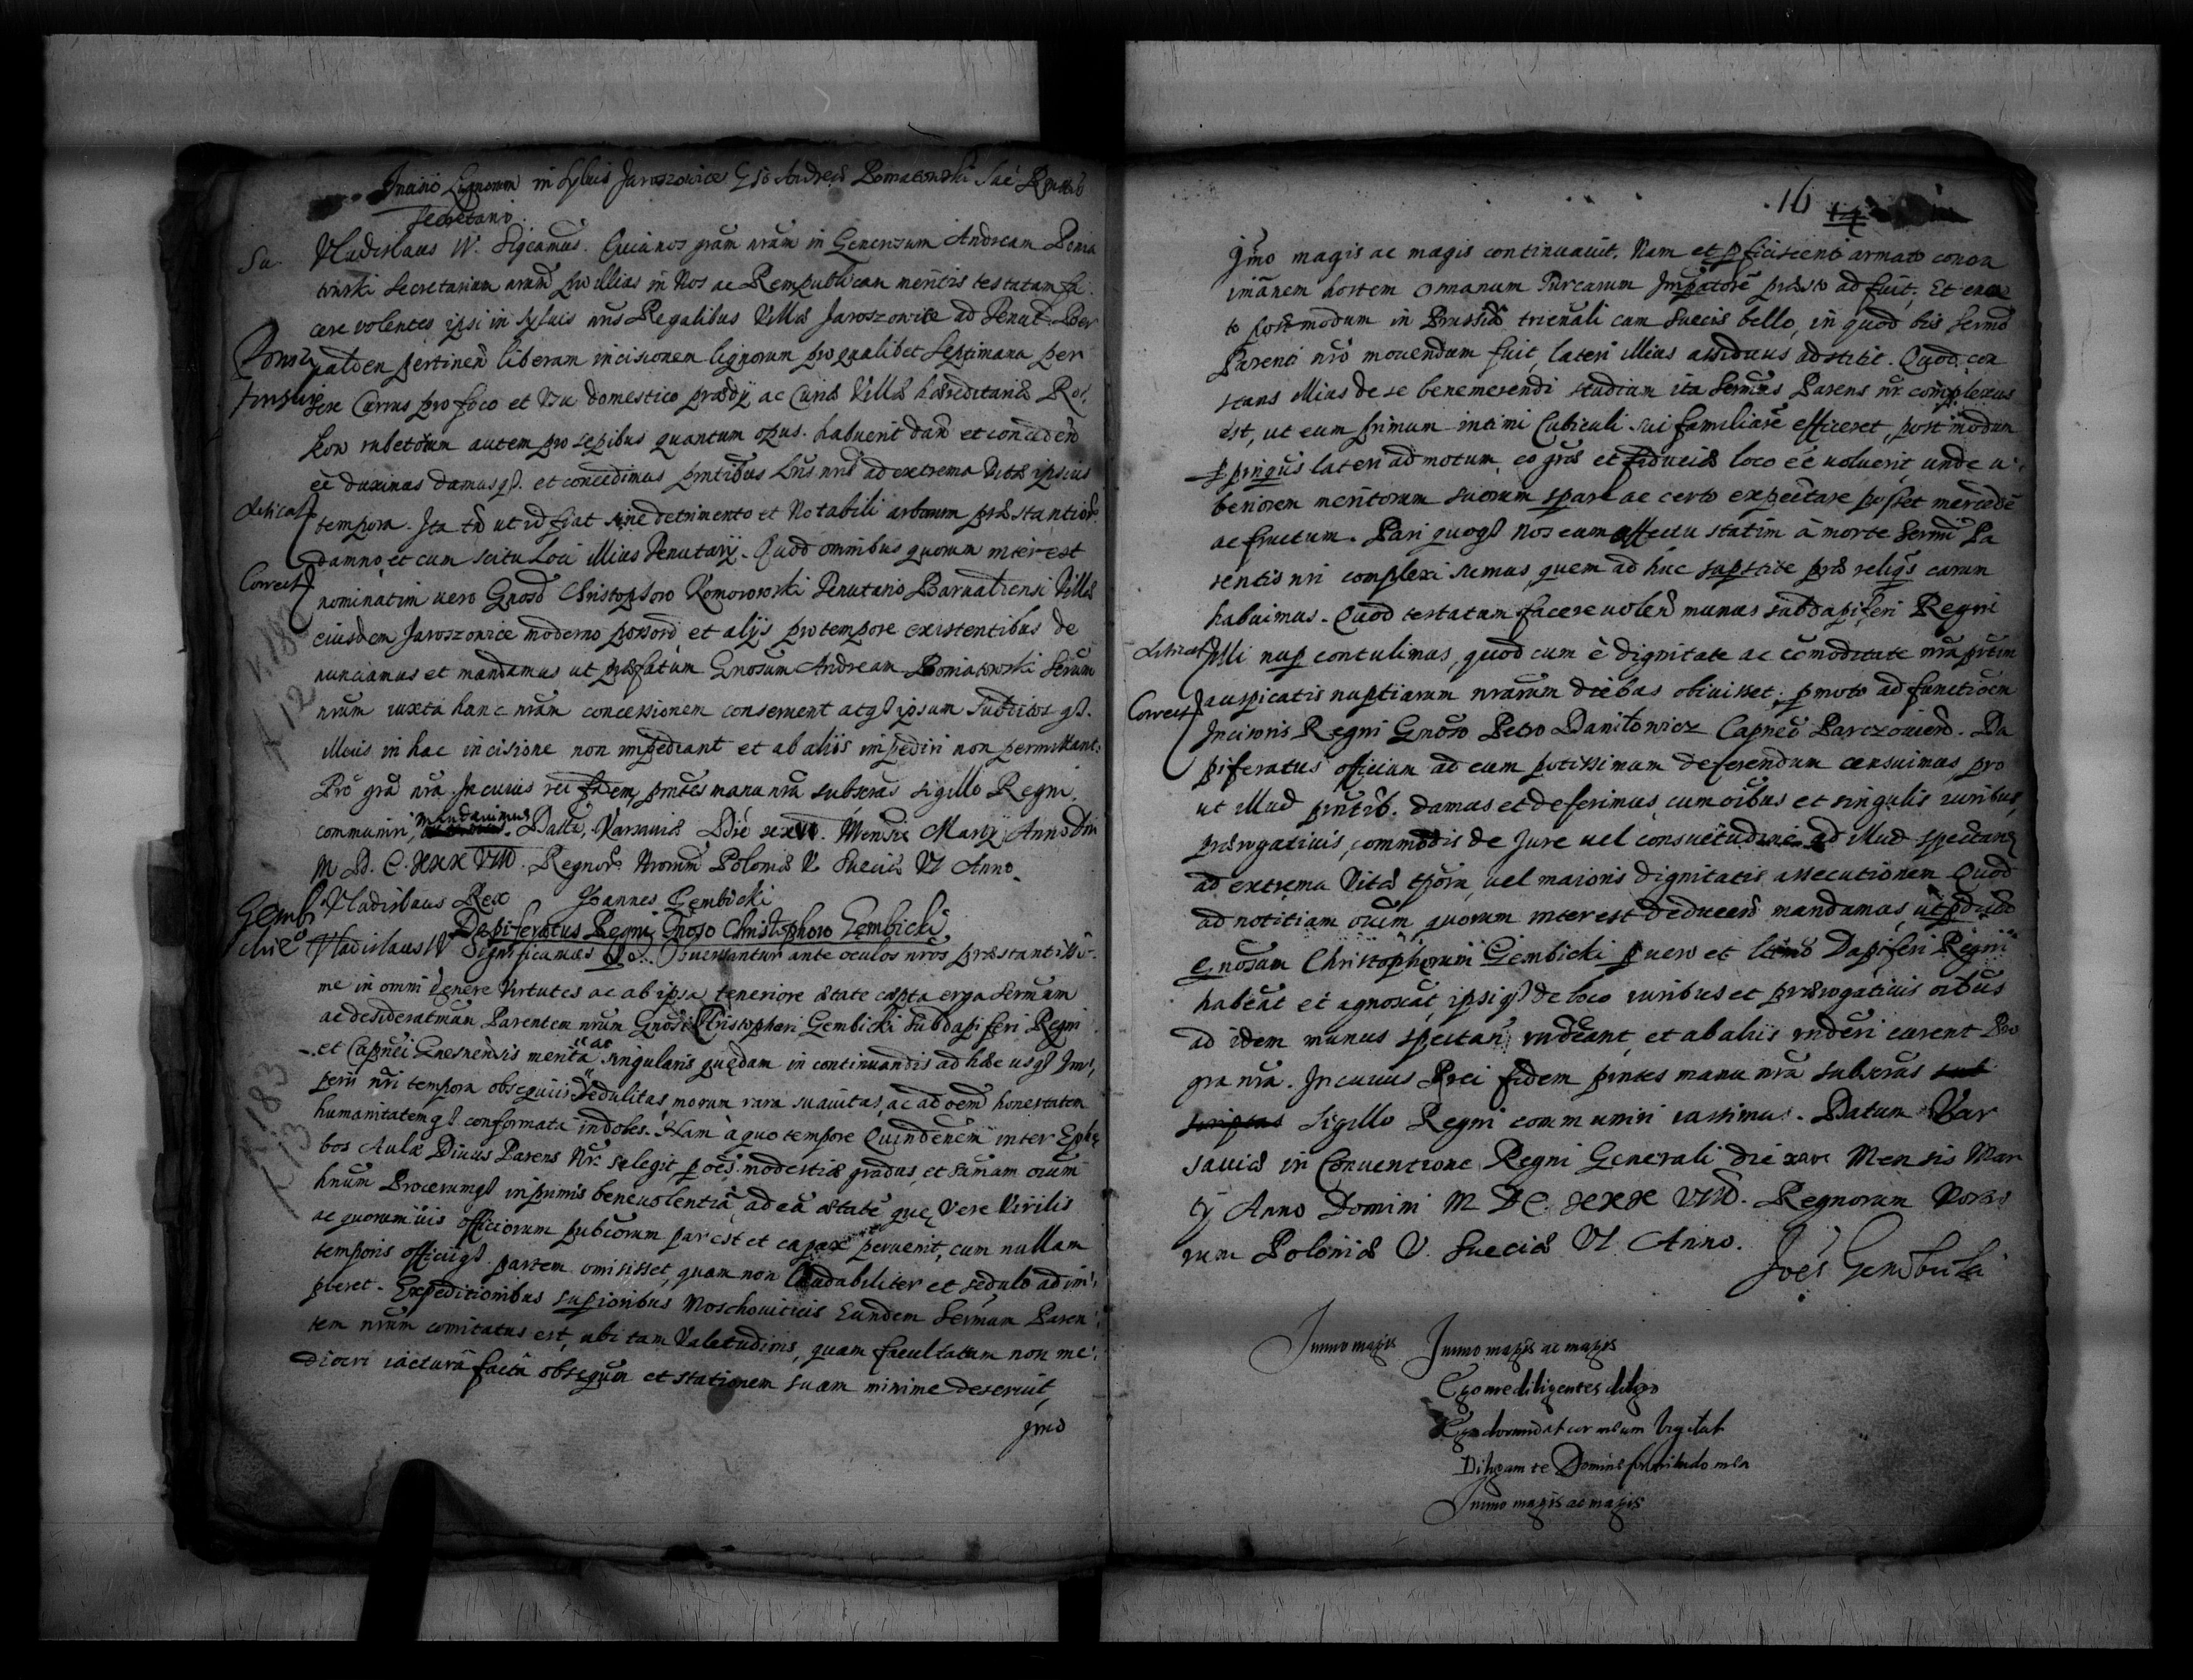 Incisio Lignorum in Sylvis Jaroszowice Gso Andreæ Poniatowski Sac
Secretario.
Vladislaus IV. Sigcamus. Quia nos gram nram in Generosum Andream Ponia
towski Secretarium nrum pro illius in Nos ac Rempublicam meritis testatam fa
cere volentes ipsi in Syluis nris Regalibus Villæ Jaroszowice ad Tenut
pertinen liberam incisionem lignorum pro qualibet Septimana per
sex Currus pro foco et Usu domestico prædij ac Curiæ Villæ hæreditariæ
kow rubetorum autem pro sepibus quantum opus habuerit dan et conceden
ee duximus damusq. et concedimus pntibus Lris nris ad extrema Vitæ ipsius
tempora. Ita tn ut id fiat sine detrimento et Notabili arborum præstantior
damno, et cum scitu Loci illius Tenutarij. Quod omnibus quorum interest
nominatim uero Gnoso Christophoro Komorowski Tenutario Barualdensi Villæ
eiusdem Jaroszowice moderno possori, et alijs pro tempore existentibus de
nunciamus et mandamus ut præfatum Gnosum Andream Poniatowski Serum
nrum iuxta hanc nram concessionem conseruent atq ipsum Subditos q.
illius in hac incisione non impediant et ab aliis impediri non permittant.
Pro gra nra. In cuius rei fidem pntes manu nra subscras sigillo Regni
communiri, mandauimus. Datt, Varsauiæ Die xxVI. Mensis Martij Anno Dni
M. D. C. XXX VIII. Regnor Nrorum Poloniæ V. Sueciæ VI Anno.
Vladislaus Rex Joannes Gembicki
Dapiferatus Regni Gnoso Christophoro Gembicki
Vladislaus IV Significamus &c. Obuersantur ante oculos nros præstantissi
me in omni genere Virtutes ac ab ipsa teneriore ætate cæpta erga Sermum
ac desideratmum Parentem nrum Gnosi Christophori Gembicki Subdapiferi Regni
et Capnei Gnesnensis merita ac singularis quędam in continuandis ad hæc usq Im
perii nri tempora obsequiis Sedulitas, morum rara suauitas, ac ad oem honestatem
humanitatemq conformata indoles. Nam a quo tempore Quindenem inter Ephe
bos Aulæ Diuus Parens Nr. selegit, p oes modestiæ gradus, et sumam oium
hnum Procerumq inprimis beneuolentia, ad ea ætate quę Vere Virilis
ac quorumuis officiorum pubcorum par est et capax peruenit, cum nullam
temporis officiiq partem omisisset, quam non laudabiliter et sedulo adim
pleret. Expeditionibus superioribus Moschouiticis Eundem Sermum Paren
tem nrum comitatus est, ubi tam Valetudinis, quam facultatum non me
diocri iactura facta obsequia et stationem suam minime deseruit,
Imo
16 14
Imo magis ac magis continuauit. Nam et pficiscenti armato contra
imanem hostem Omanum Turcarum Impatore præsto ad fuit, Et
to postmodum in Prussia trienali cum Suecis bello, in quod bis Sermo
Parenti nro mouendum fuit, lateri illius assiduus adstitit. Quod con
stans illius de se benemerendi studium ita Sermus Parens nr. complexus
est, ut eum primum intimi Cubiculi sui familiare efficeret, postmodum
ppinquis lateri admotum, eo græ et fiduciæ loco ee uoluerit, unde u
beriorem meritorum suorum sparare ac certo expectare posset mercede
ac fructum. Pari quoq Nos eum affectu statim a morte Sermi Pa
rentis nri complexi sumus, quem ad huc præ reliqs carum
habuimus. Quod testatum facere uolen munus subdapiferi Regni
Illi nup contulimus, quod cum e dignitate ac comoditate nra
auspicatis nuptiarum nrarum diebus obiuisset, pmoto ad functioem
Incisoris Regni Gnoso Petro Danilowicz Capneo Parczouien. Da
piferatus officium ad eum potissimum deferendum censuimus pro
ut illud pntib. damus et deferimus, cum oibus et singulis iuribus,
prærogatiuis, commodis de Jure uel consuetudine ad illud spectan
ad extrema Vitæ tpora, uel maioris dignitatis assecutionem. Quod
ad notitiam oium, quorum interest deducen mandamus, ut
Gnosum Christophorum Gembicki p uero et ltimo Dapiferi Regni
habeat et agnoscat, ipsiq de loco iuribus et prærogatiuis oibus
ad idem munus spectan rndeant, et ab aliis rnderi curent. Pro
gra nra. In cuius Rei fidem pntes manu nra subscras sub
scriptas Sigillo Regni communiri iussimus. Datum Var
sauiæ in Conuentione Regni Generali die xxvi Mensis Mar
tij Anno Domini M DC XXX VIII. Regnorum Nostro
rum Poloniæ V. Sueciæ VI. Anno.
Joes Gembicki
Immo magis Immo magis ac magis
Ego me diligentes diligo
Ego dormio et cor meum Vigilat
Diligam te Domine fortitudo mea
Immo magis ac magis